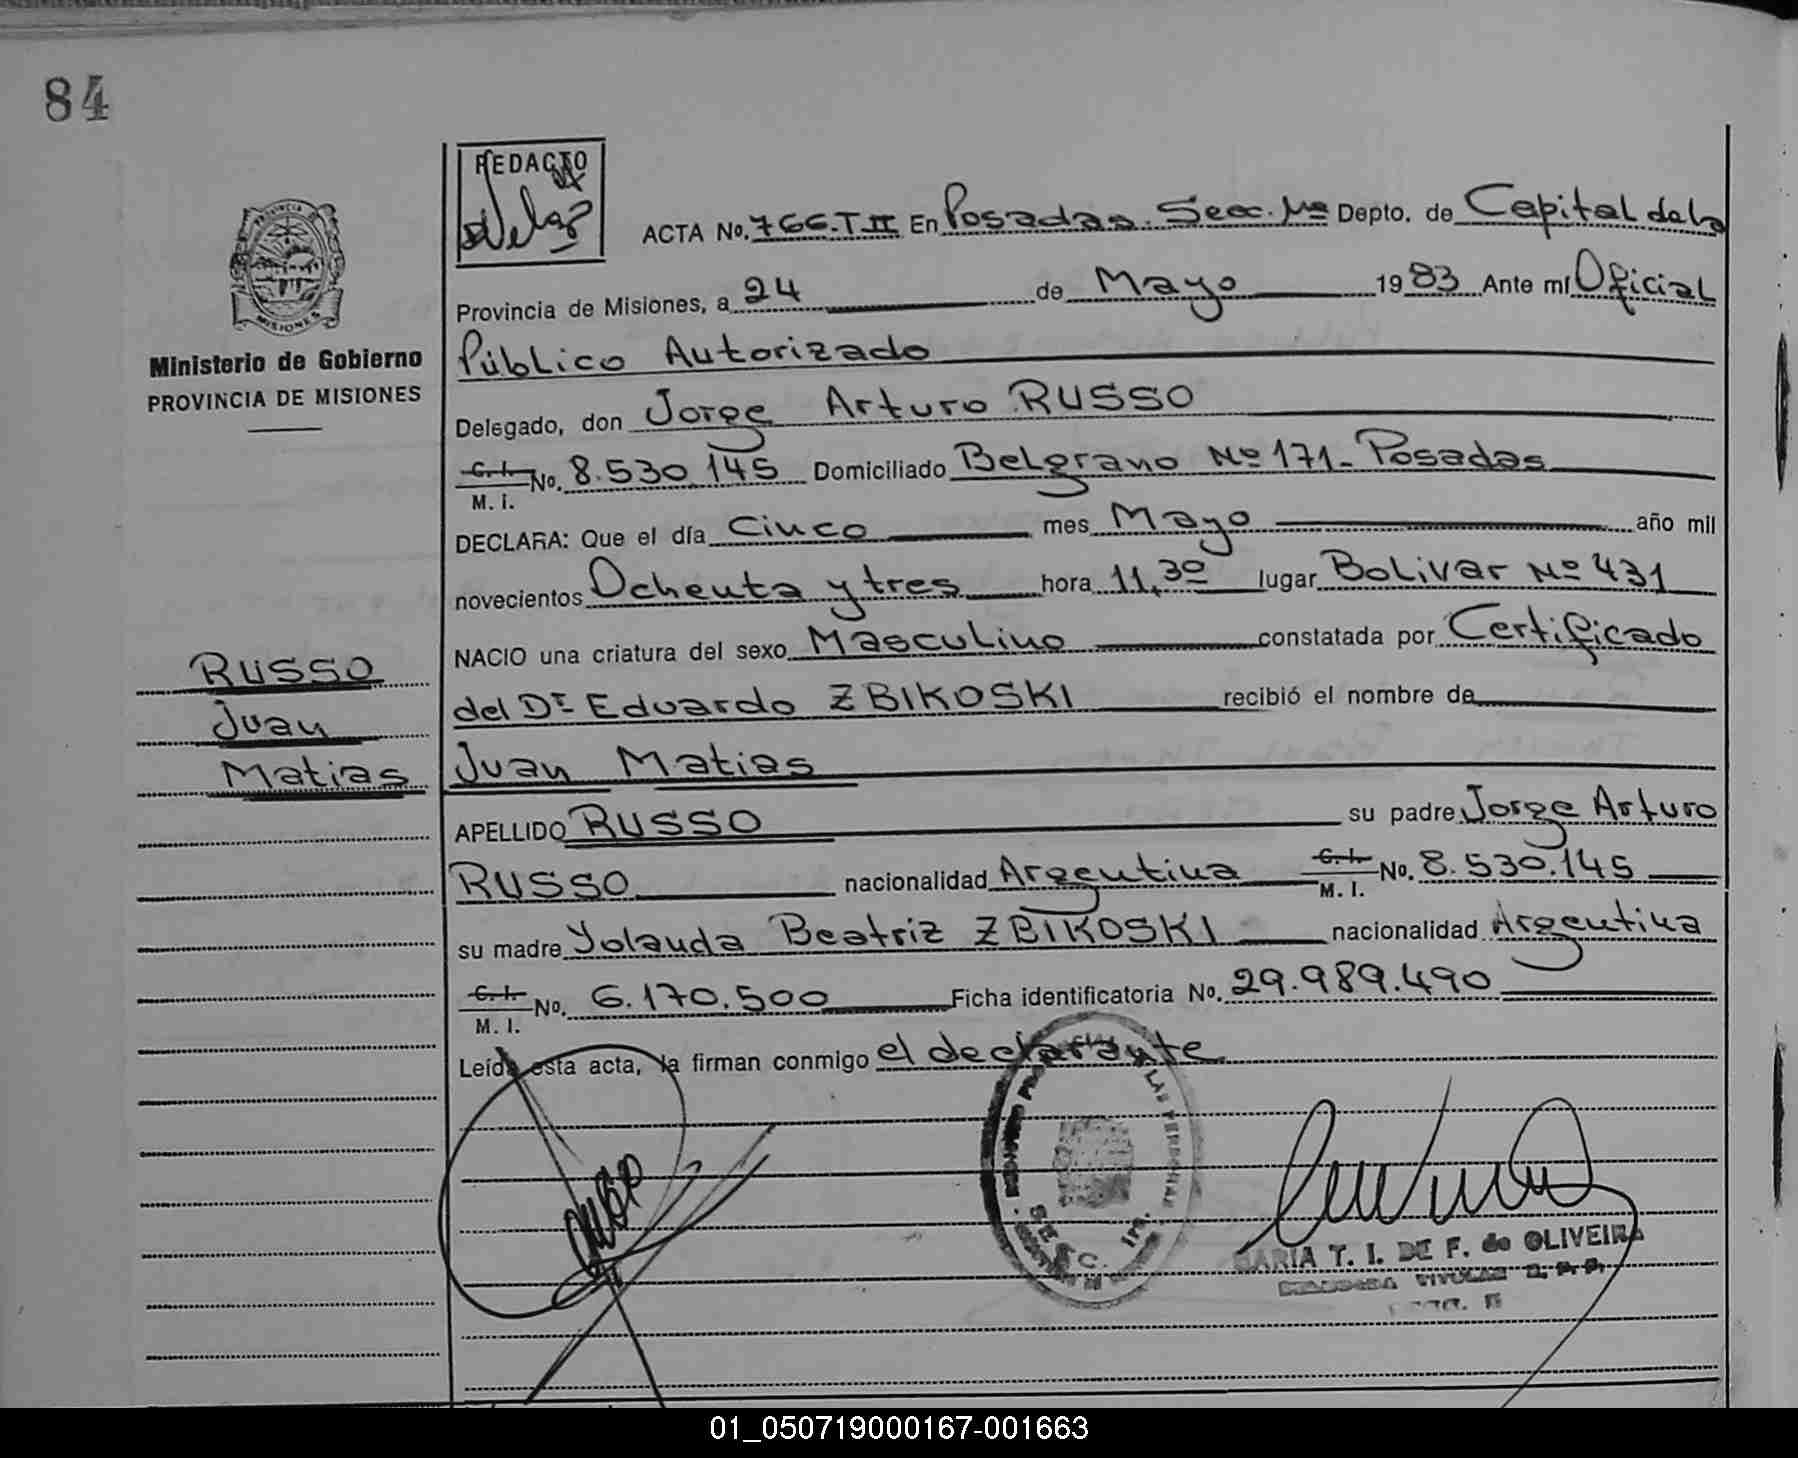 84
REDACTO
ACTA No. 766.T II En Posadas. Secc. 1ra Depto. de Capital de la
Provincia de Misiones, a 24 de Mayo 1983 Ante mí Oficial
Público Autorizado
PROVINCIA DE
MISIONES
Ministerio de Gobierno
PROVINCIA DE MISIONES
Delegado, don Jorge Arturo RUSSO
C. I. M. I. No. 8.530.145 Domiciliado Belgrano Nº 171- Posadas
DECLARA: Que el día Cinco mes Mayo año mil
novecientos Ochenta y tres hora 11,30 lugar Bolivar Nº 431
NACIO una criatura del sexo Masculino constatada por Certificado
del Dr Eduardo ZBIKOSKI recibió el nombre de
Juan Matias
RUSSO
Juan
Matias
APELLIDO RUSSO su padre Jorge Arturo
RUSSO nacionalidad Argentina C. I. M. I. No. 8.530.145
su madre Yolanda Beatriz ZBIKOSKI nacionalidad Argentina
C. I. M. I. No. 6.170.500 Ficha identificatoria No. 29.989.490
Leída esta acta, la firman conmigo el declarante
LAS PERSONAS
MARIA T. I. DE F. de OLIVEIRA
01_050719000167-001663